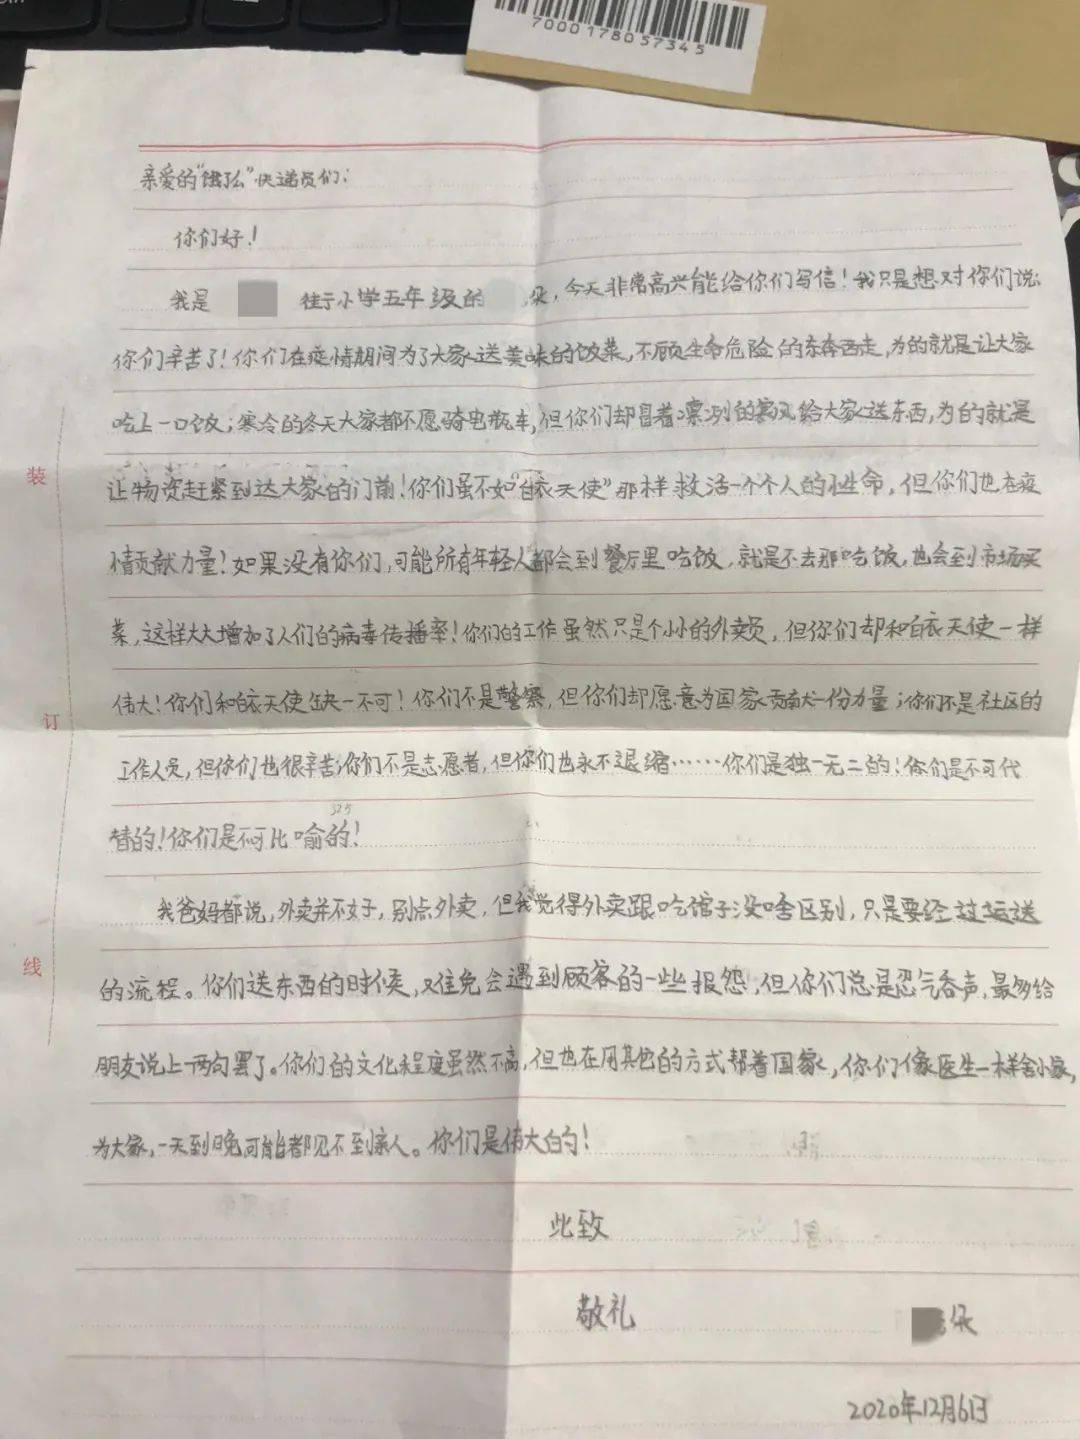 7000178057345
亲爱的“饿了么”快递员们：
你们好！
我是 桂于小学五年级的 朵，今天非常高兴能给你们写信！我只是想对你们说：
你们辛苦了！你们在疫情期间为了大家送美味的饭菜，不顾生命危险的东奔西走，为的就是让大家
吃上一口饭；寒冷的冬天大家都不愿骑电瓶车，但你们却冒着凛冽的寒风给大家送东西，为的就是
让物资赶紧到达大家的门前！你们虽不如“白衣天使”那样救活一个个人的性命，但你们也在疫
情贡献力量！如果没有你们，可能所有年轻人都会到餐厅里吃饭，就是不去那吃饭，也会到市场买
菜，这样大大增加了人们的病毒传播率！你们的工作虽然只是个小小的外卖员，但你们却和白衣天使一样
伟大！你们和白衣天使缺一不可！你们不是警察，但你们却愿意为国家贡献一份力量；你们不是社区的
工作人员，但你们也很辛苦；你们不是志愿者，但你们也永不退缩……你们是独一无二的！你们是不可代
325
替的！你们是不可比喻的！
我爸妈都说，外卖并不好，别点外卖，但我觉得外卖跟吃馆子没啥区别，只是要经过运送
的流程。你们送东西的时候，难免会遇到顾客的一些报怨，但你们总是忍气吞声，最多给
朋友说上一两句罢了。你们的文化程度虽然不高，但也在用其他的方式帮着国家，你们像医生一样舍小家，
为大家，一天到晚可能都见不到亲人。你们是伟大的！
此致
敬礼
2020年12月6日
装
订
线